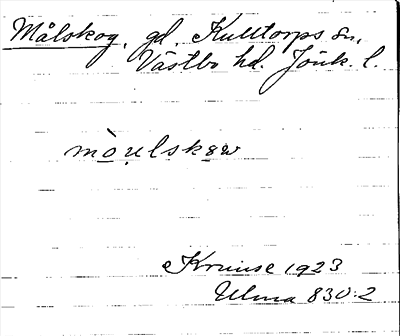 Målskog, gd, Kulltorps sn,
Västbo hd. Jönk. l.
mò̱u̱lskəw
Kruuse 1923
Ulma 830:2